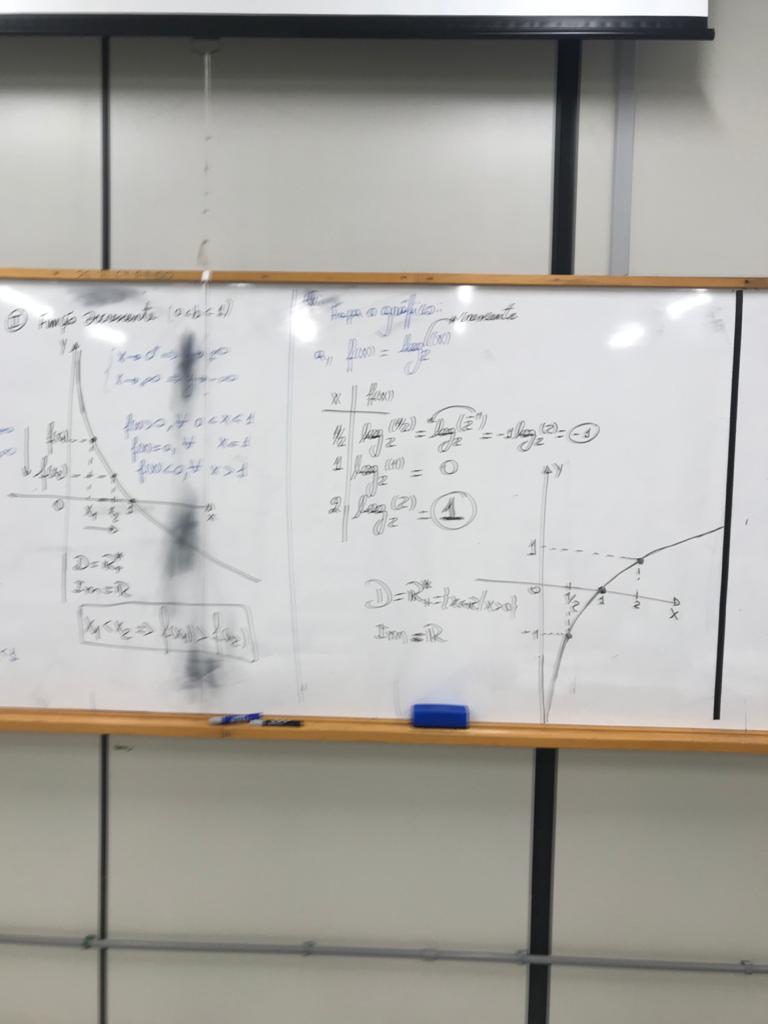 II Função decrescente (0<b<1)
Y
x→0⁺ ⇒ y→∞
x→∞ ⇒ y→-∞
f(x)>0, ∀ 0<x<1
f(x)=0, ∀ x=1
f(x)<0, ∀ x>1
f(x₁)
f(x₂)
0 x₁ x₂ 1 x
D=ℝ₊*
Im=ℝ
x₁<x₂ ⇒ f(x₁)>f(x₂)
Faça o gráfico:
a,, f(x) = log₂(x) crescente
x f(x)
1/2 log₂(1/2) = log₂(2⁻¹) = -1log₂(2) = -1
1 log₂(1) = 0
2 log₂(2) = 1
D=ℝ₊*={x∈ℝ/x>0}
Im=ℝ
Y
1
0 1/2 1 2 X
-1